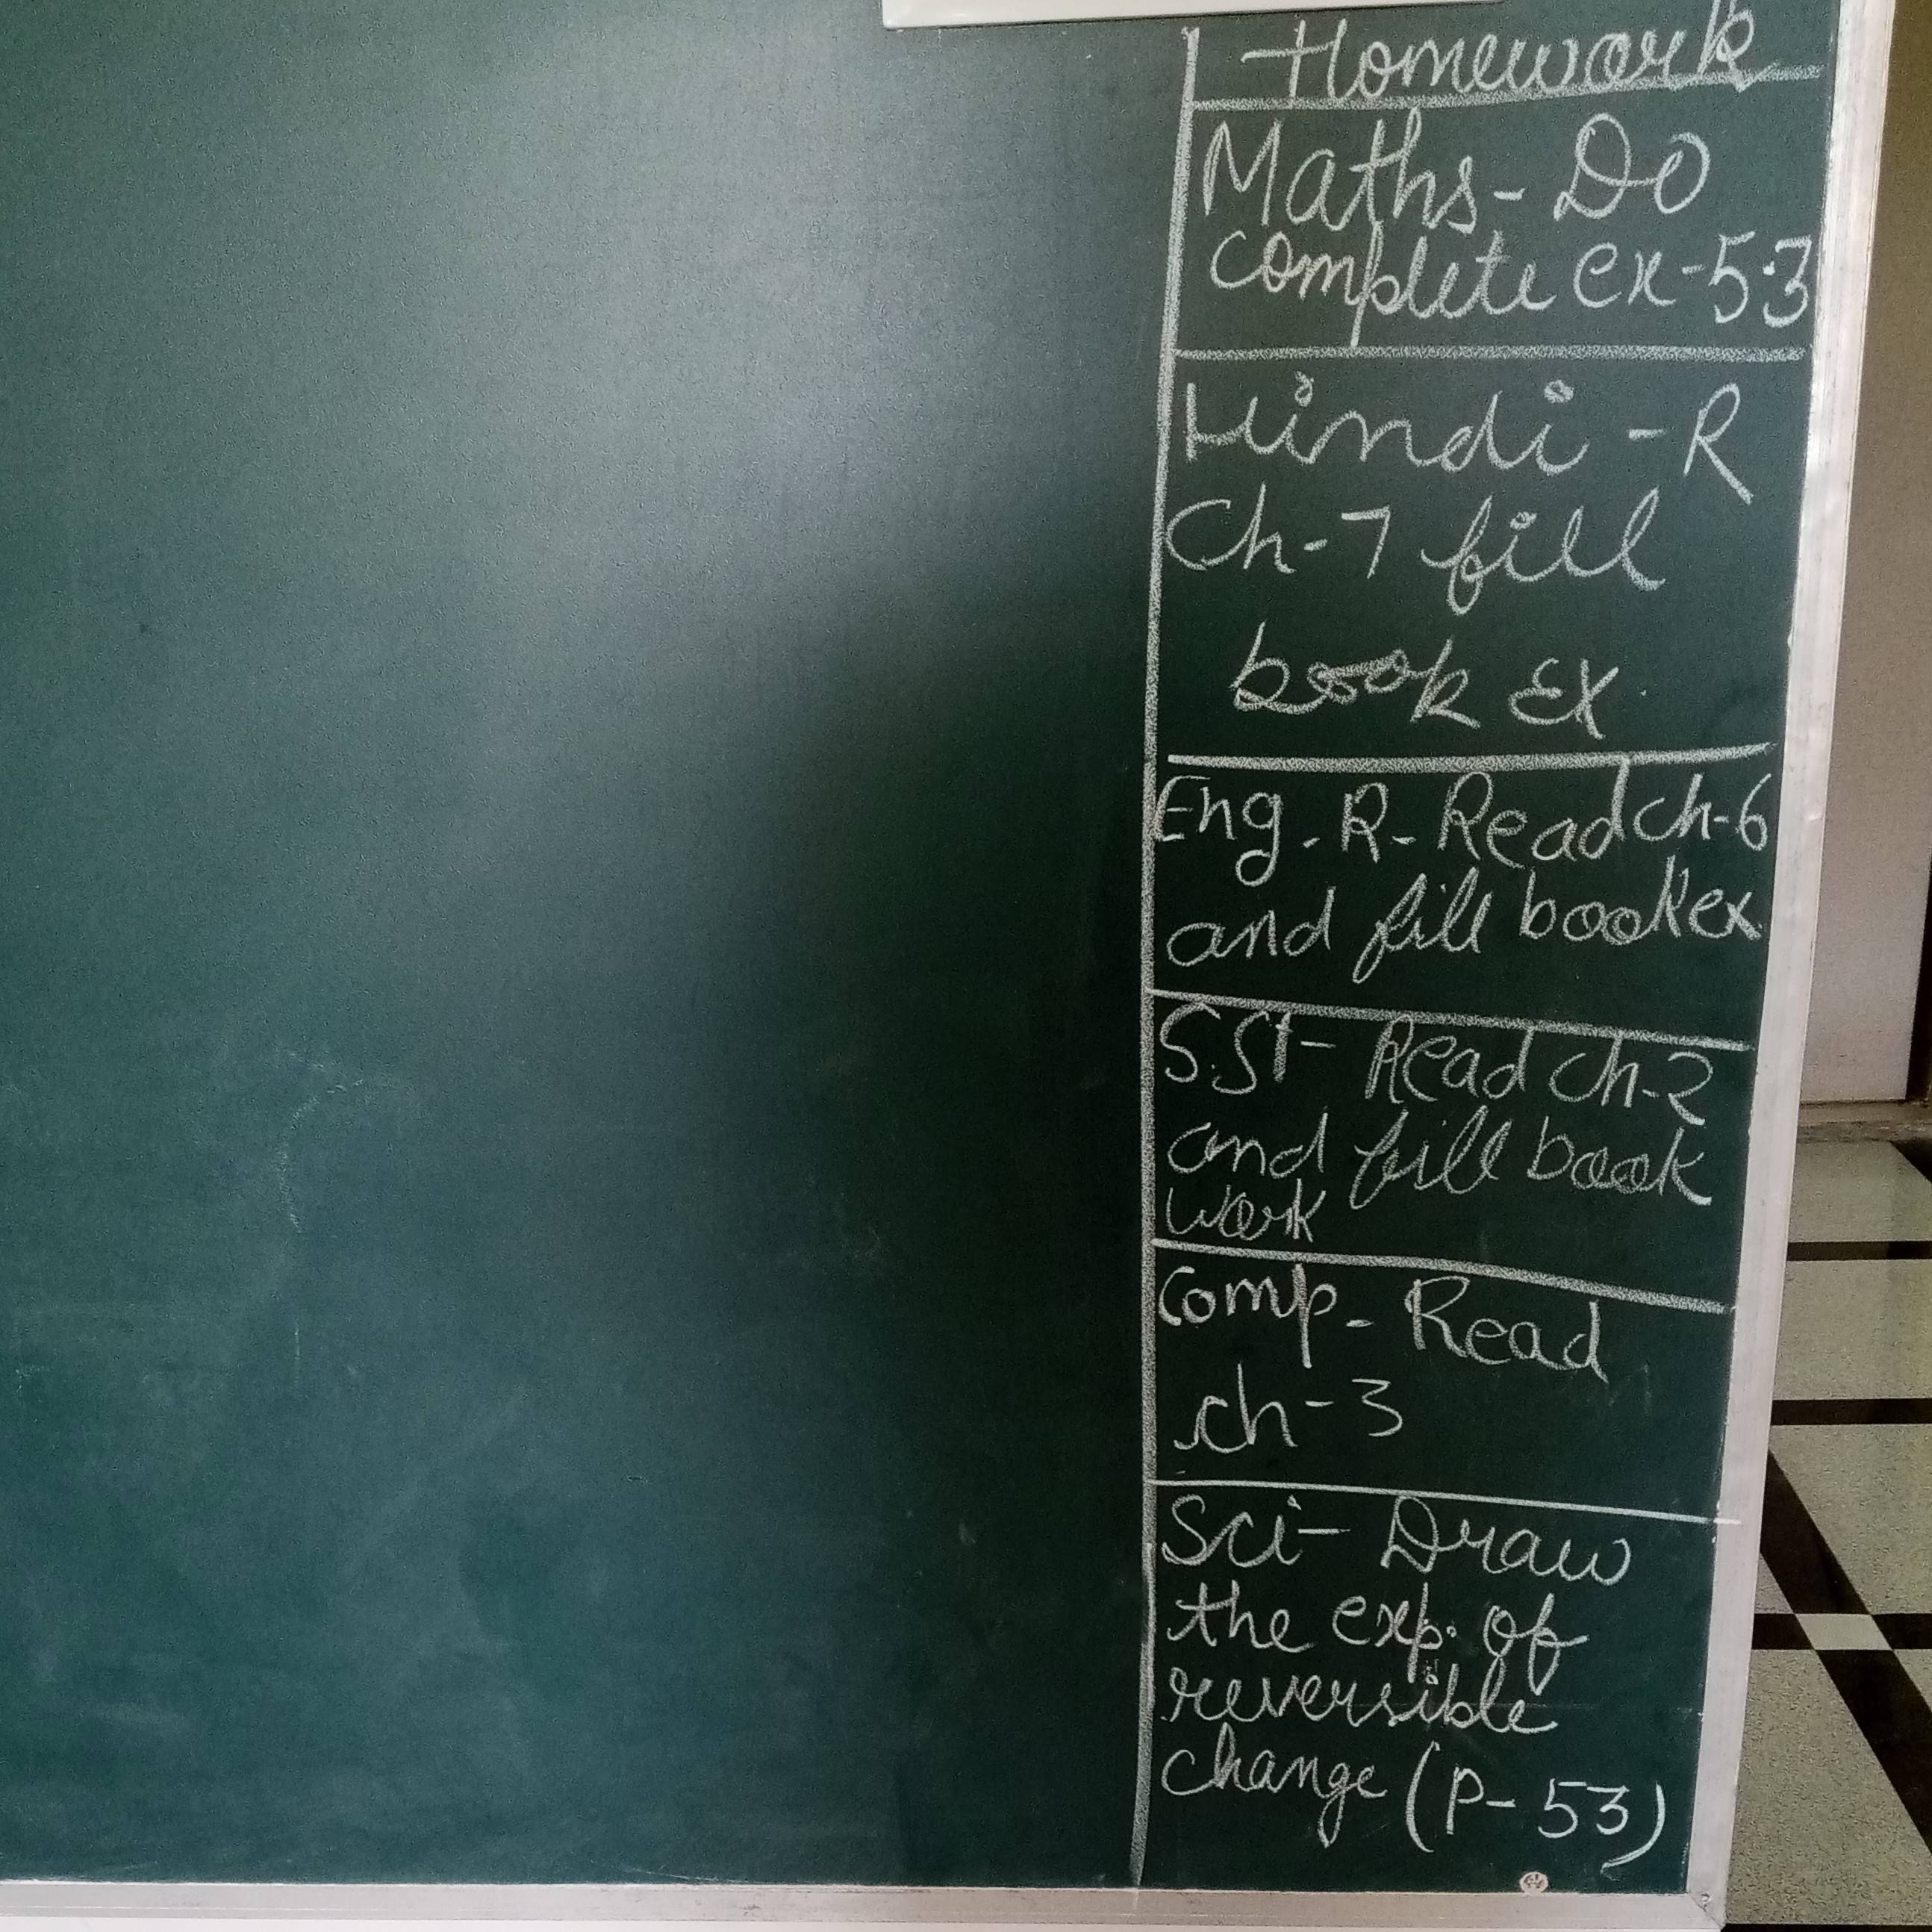 Homework
Maths - Do
complete ex-5.3
Hindi - R
Ch-7 fill
book Ex.
Eng. R- Read ch-6
and fill book ex.
S.St- Read ch-2
and fill book
work
Comp- Read
ch-3
Sci- Draw
the exp. of
reversible
change (P-53)